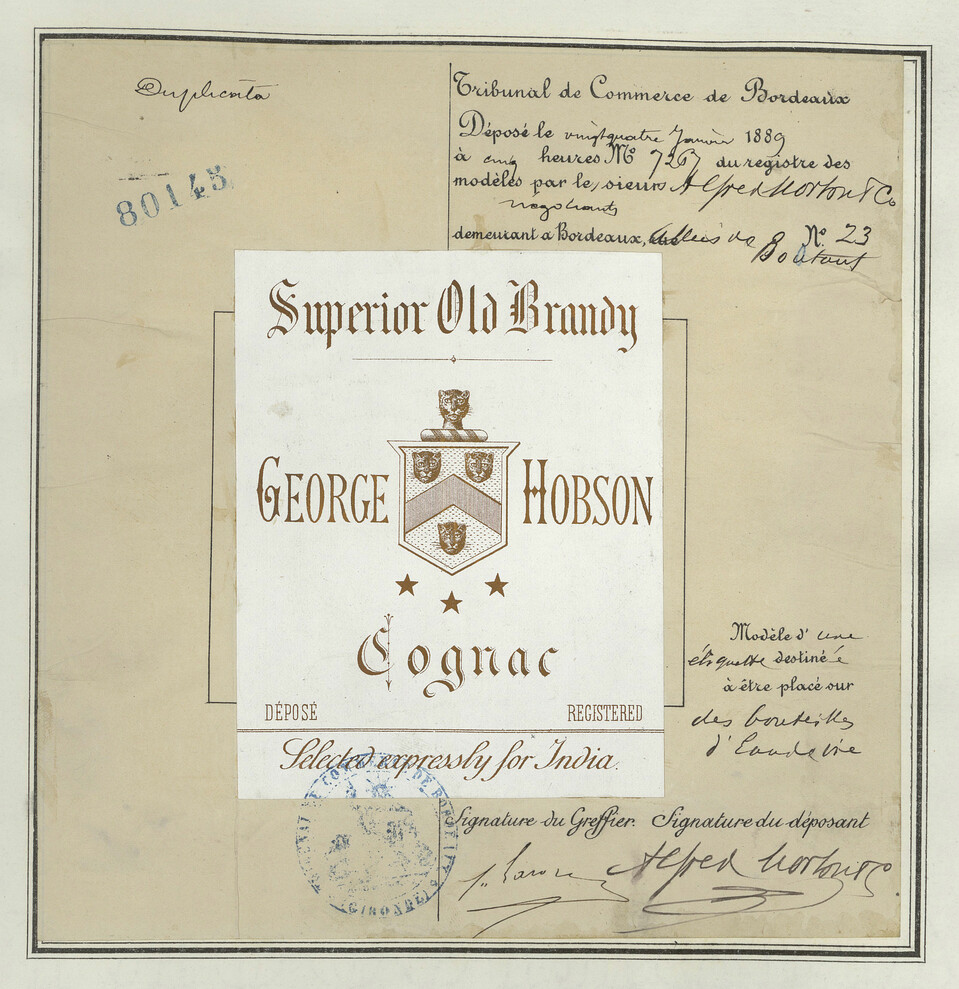 Duplicata
80145
Tribunal de Commerce de Bordeaux
Déposé le vingtquatre Janvier 1889
à cinq heures Nº 7267 du registre des
modèles par le sieurs Alfred Morton & Co
négociants
demeurant à Bordeaux, Nº 23
Boutaut
Superior Old Brandy
GEORGE HOBSON
Cognac
DÉPOSÉ REGISTERED
Selected expressly for India.
Modèle d' une
étiquette destinée
à être placé sur
des bouteilles
d'Eau de vie
TRIBUNAL DE COMMERCE DE BORDEAUX
(GIRONDE)
Signature du Greffier. Signature du déposant
Alfred Morton & Co